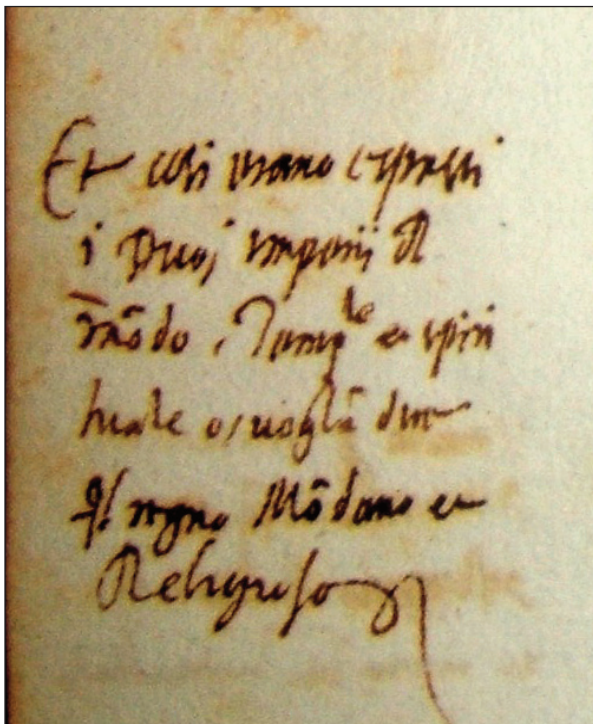 Et cosi erano expressi
i Duoi imperii del
mõdo, Tempˡᵉ et spiri
tuale o, uoglã dire
regno Mõdano et
Religioso